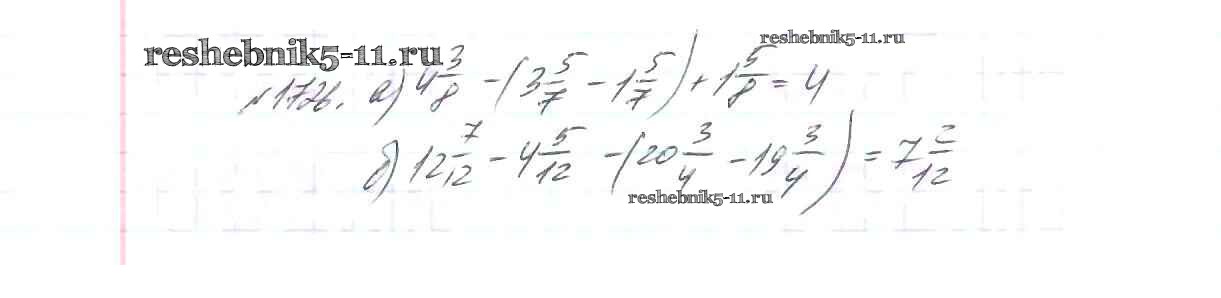 reshebnik5-11.ru
reshebnik5-11.ru
№1726. а) 4 3/8 - (3 5/7 - 1 5/7) + 1 5/8 = 4
б) 12 7/12 - 4 5/12 - (20 3/4 - 19 3/4) = 7 2/12
reshebnik5-11.ru